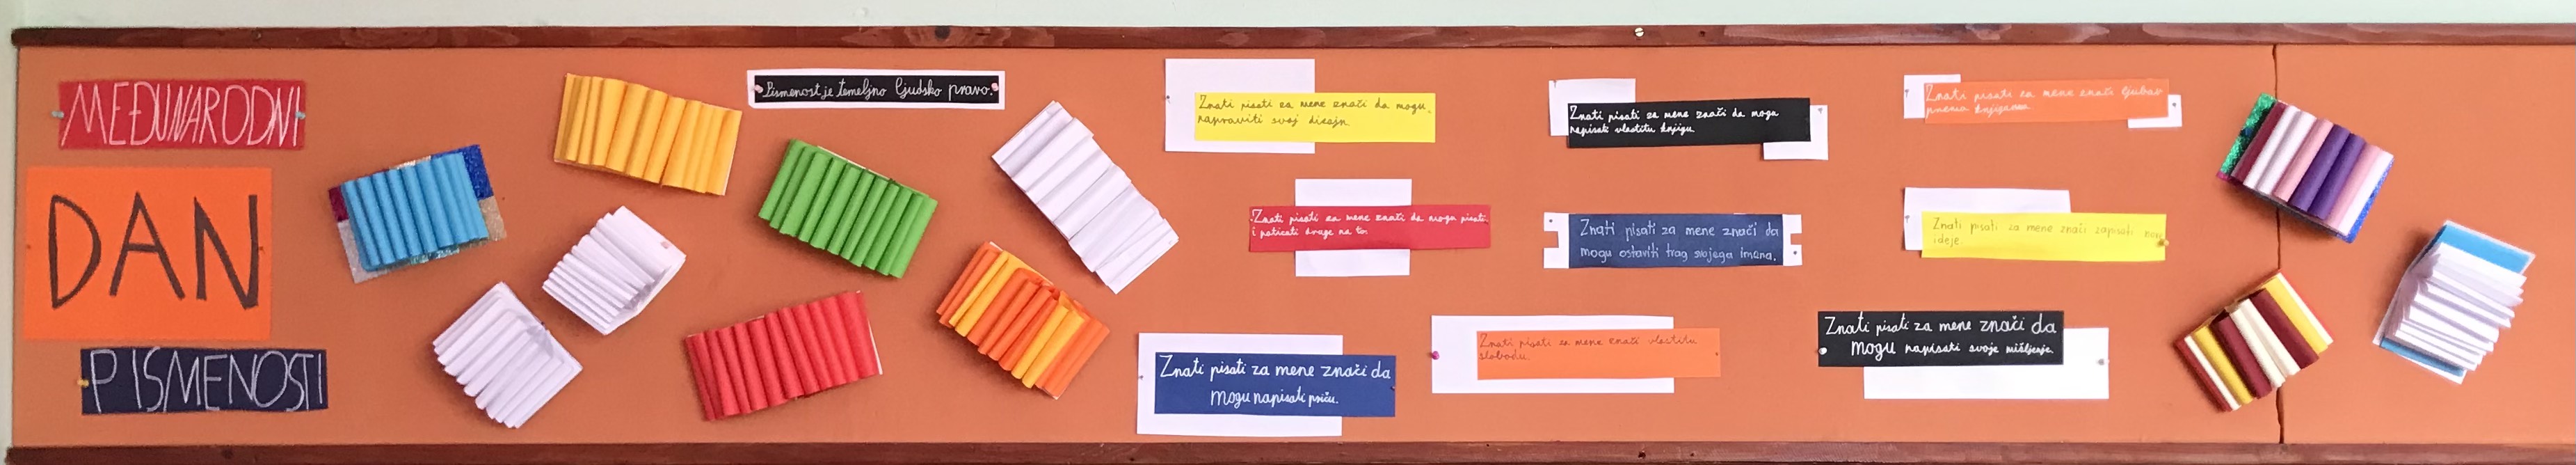 MEĐUNARODNI
DAN
PISMENOSTI
Pismenost je temeljno ljudsko pravo.
Znati pisati za mene znači da mogu
napraviti svoj dizajn.
Znati pisati za mene znači da mogu
napisati vlastitu knjigu.
Znati pisati za mene znači ljubav
prema knjigama.
Znati pisati za mene znači da mogu pisati
i poticati druge na to.
Znati pisati za mene znači da
mogu ostaviti trag svojega imena.
Znati pisati za mene znači zapisati nove
ideje.
Znati pisati za mene znači da
mogu napisati priču.
Znati pisati za mene znači vlastitu
slobodu.
Znati pisati za mene znači da
mogu napisati svoje mišljenje.